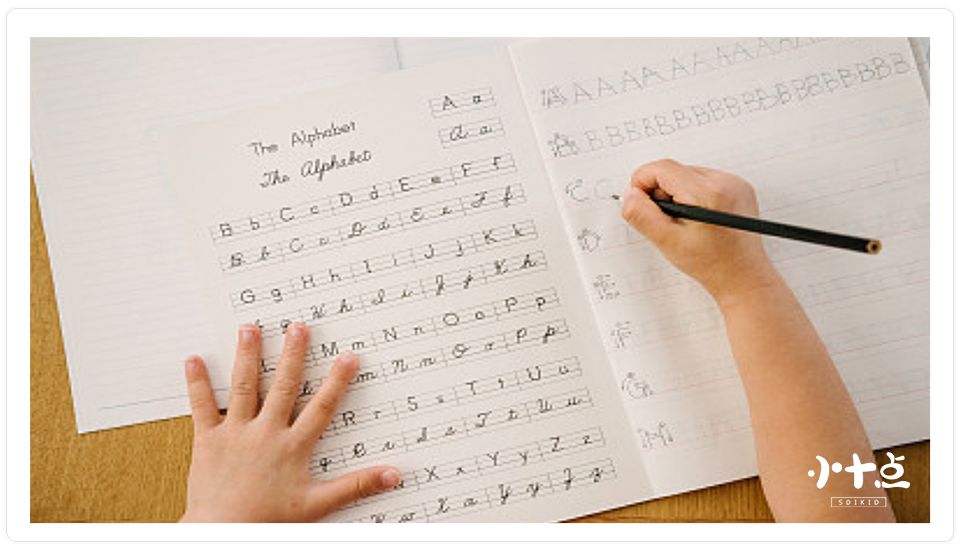 A a
The Alphabet
A a
The Alphabet
B b C c D d E e F f
B b C c D d E e F f
G g H h I i J j K k
g H h I i J j K k
L M m N n O o P p
l m N n O o P p
R r S s T t U u
q R r S s T t U u
X x Y y Z z
W w X x Y y Z z
A A A A A A A A A A A
B B B B B B B B B B B B B B B B
C C
D
E
F
G
H
小十点
SOIKID